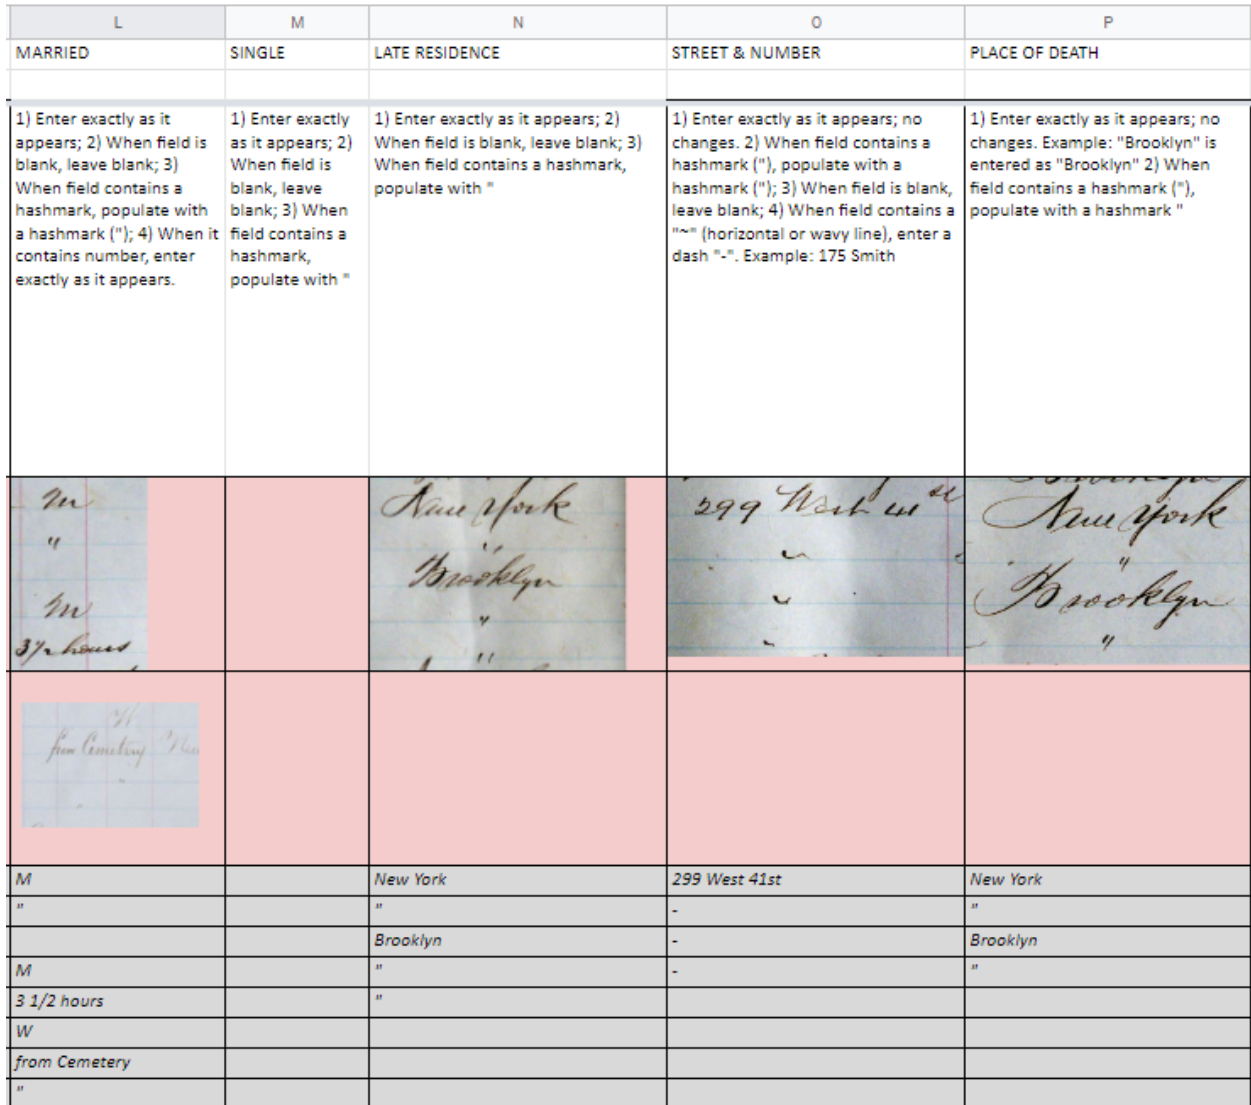 L M N O P
MARRIED SINGLE LATE RESIDENCE STREET & NUMBER PLACE OF DEATH
1) Enter exactly as it
appears; 2) When field is
blank, leave blank; 3)
When field contains a
hashmark, populate with
a hashmark ("); 4) When it
contains number, enter
exactly as it appears.
1) Enter exactly
as it appears; 2)
When field is
blank, leave
blank; 3) When
field contains a
hashmark,
populate with "
1) Enter exactly as it appears; 2)
When field is blank, leave blank; 3)
When field contains a hashmark,
populate with "
1) Enter exactly as it appears; no
changes. 2) When field contains a
hashmark ("), populate with a
hashmark ("); 3) When field is blank,
leave blank; 4) When field contains a
"~" (horizontal or wavy line), enter a
dash "-". Example: 175 Smith
1) Enter exactly as it appears; no
changes. Example: "Brooklyn" is
entered as "Brooklyn" 2) When
field contains a hashmark ("),
populate with a hashmark "
M
"
M
3 1/2 hours
New York
"
Brooklyn
"
"
299 West 41 st
~
~
~
New York
"
Brooklyn
"
W
from Cemetery New
"
M New York 299 West 41st New York
" " - "
Brooklyn - Brooklyn
M " - "
3 1/2 hours "
W
from Cemetery
"